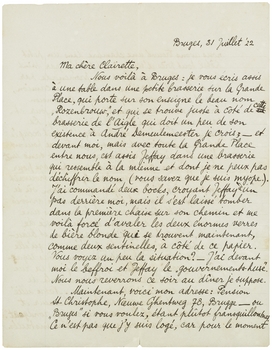 Bruges, 31 Juillet '22
Ma chère Clairette,
Nous voilà à Bruges: je vous écris assis
à une table dans une petite brasserie sur la Grande
Place, qui porte sur son enseigne le beau nom
"Rozenbroust", et qui se trouve juste à côté de cette
brasserie de l'Aigle qui doit un peu de son
existence à André Demeulemeester je crois — et
devant moi, mais avec toute la Grande Place
entre nous, est assis Jeffay dans une brasserie
qui ressemble à la mienne et dont je ne peux pas
déchiffrer le nom (vous savez que je suis myope).
J'ai commandé deux bocks, croyant Jeffay
pas derrière moi, mais il s'est laissé tomber
dans la première chaise sur son chemin et me
voilà forcé d'avaler les deux énormes verres
de bière blonde qui se trouvent maintenant,
comme deux sentinelles, à côté de ce papier.
Vous voyez un peu la situation? — J'ai devant
moi le Beffroi et Jeffay le gouvernementshuis?
Nous nous reverrons ce soir au dîner je suppose.
Maintenant, voici mon adresse: Pension
St Christophe, Nauwe Ghentweg 78, Brugge — ou
Bruges si vous voulez, étant plutôt franquillonne
Ce n'est pas que j'y sois logé, car pour le moment